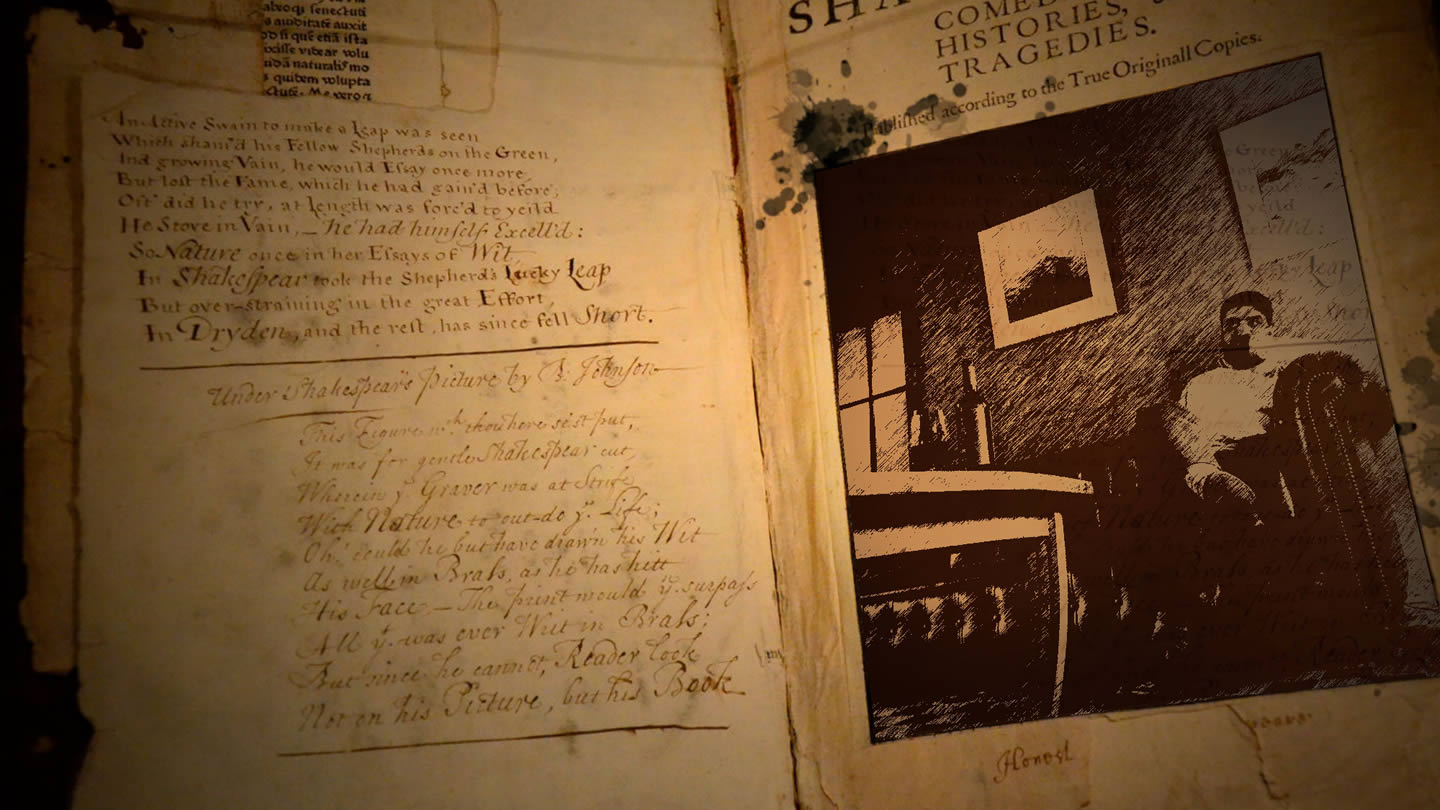 abeoqɜ senectuti
s auditatē auxit
od si quē etiā ista
ociſſe videar volu
uidā naturaliſ mo
s quidem volupta
An Active Swain to make a Leap was seen
Which sham'd his Fellow Shepherds on the Green,
And growing Vain, he would Eſsay once more,
But lost the Fame, which he had gain'd before;
Oft' did he try, at Length was forc'd to yeild
He Stove in Vain,—he had himself Excell'd:
So Nature once in her Eſsays of Wit,
In Shakeſpear took the Shepherd's Lucky Leap
But over-straining in the great Effort,
In Dryden, and the rest, has since fell Short.
Under Shakespears Picture by B: Johnson
This Figure wth thou here seest put,
It was for gentle Shakespear cut,
Wherein ye Graver was at Strife
With Nature to out-do ye Life;
Oh! could he but have drawn his Wit
As well in Braſs, as he has hitt
His Face—The print would yn surpaſs
All yt was ever Writ in Braſs;
But since he cannot, Reader look
Not on his Picture, but his Book
SHA
COMED
HISTORIES, &
TRAGEDIES.
Published according to the True Originall Copies.
Honest